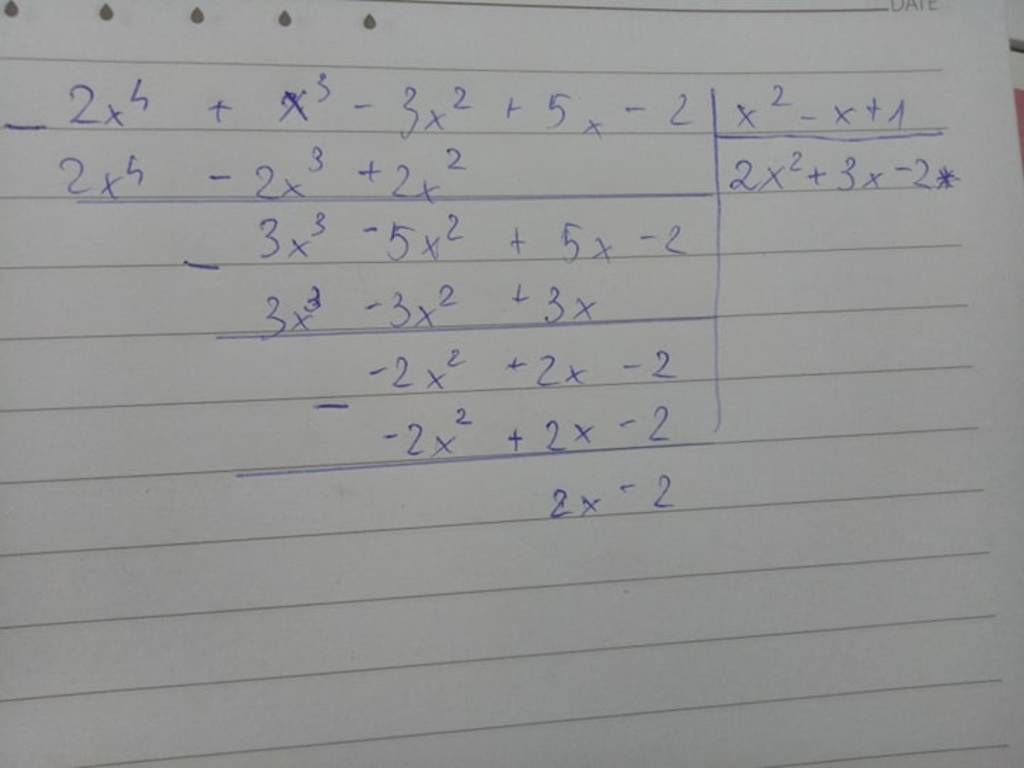 DATE
2x⁴ + x³ - 3x² + 5x - 2 | x² - x + 1
2x⁴ - 2x³ + 2x² | 2x² + 3x - 2
3x³ - 5x² + 5x - 2
3x³ - 3x² + 3x
-2x² + 2x - 2
-2x² + 2x - 2
2x - 2